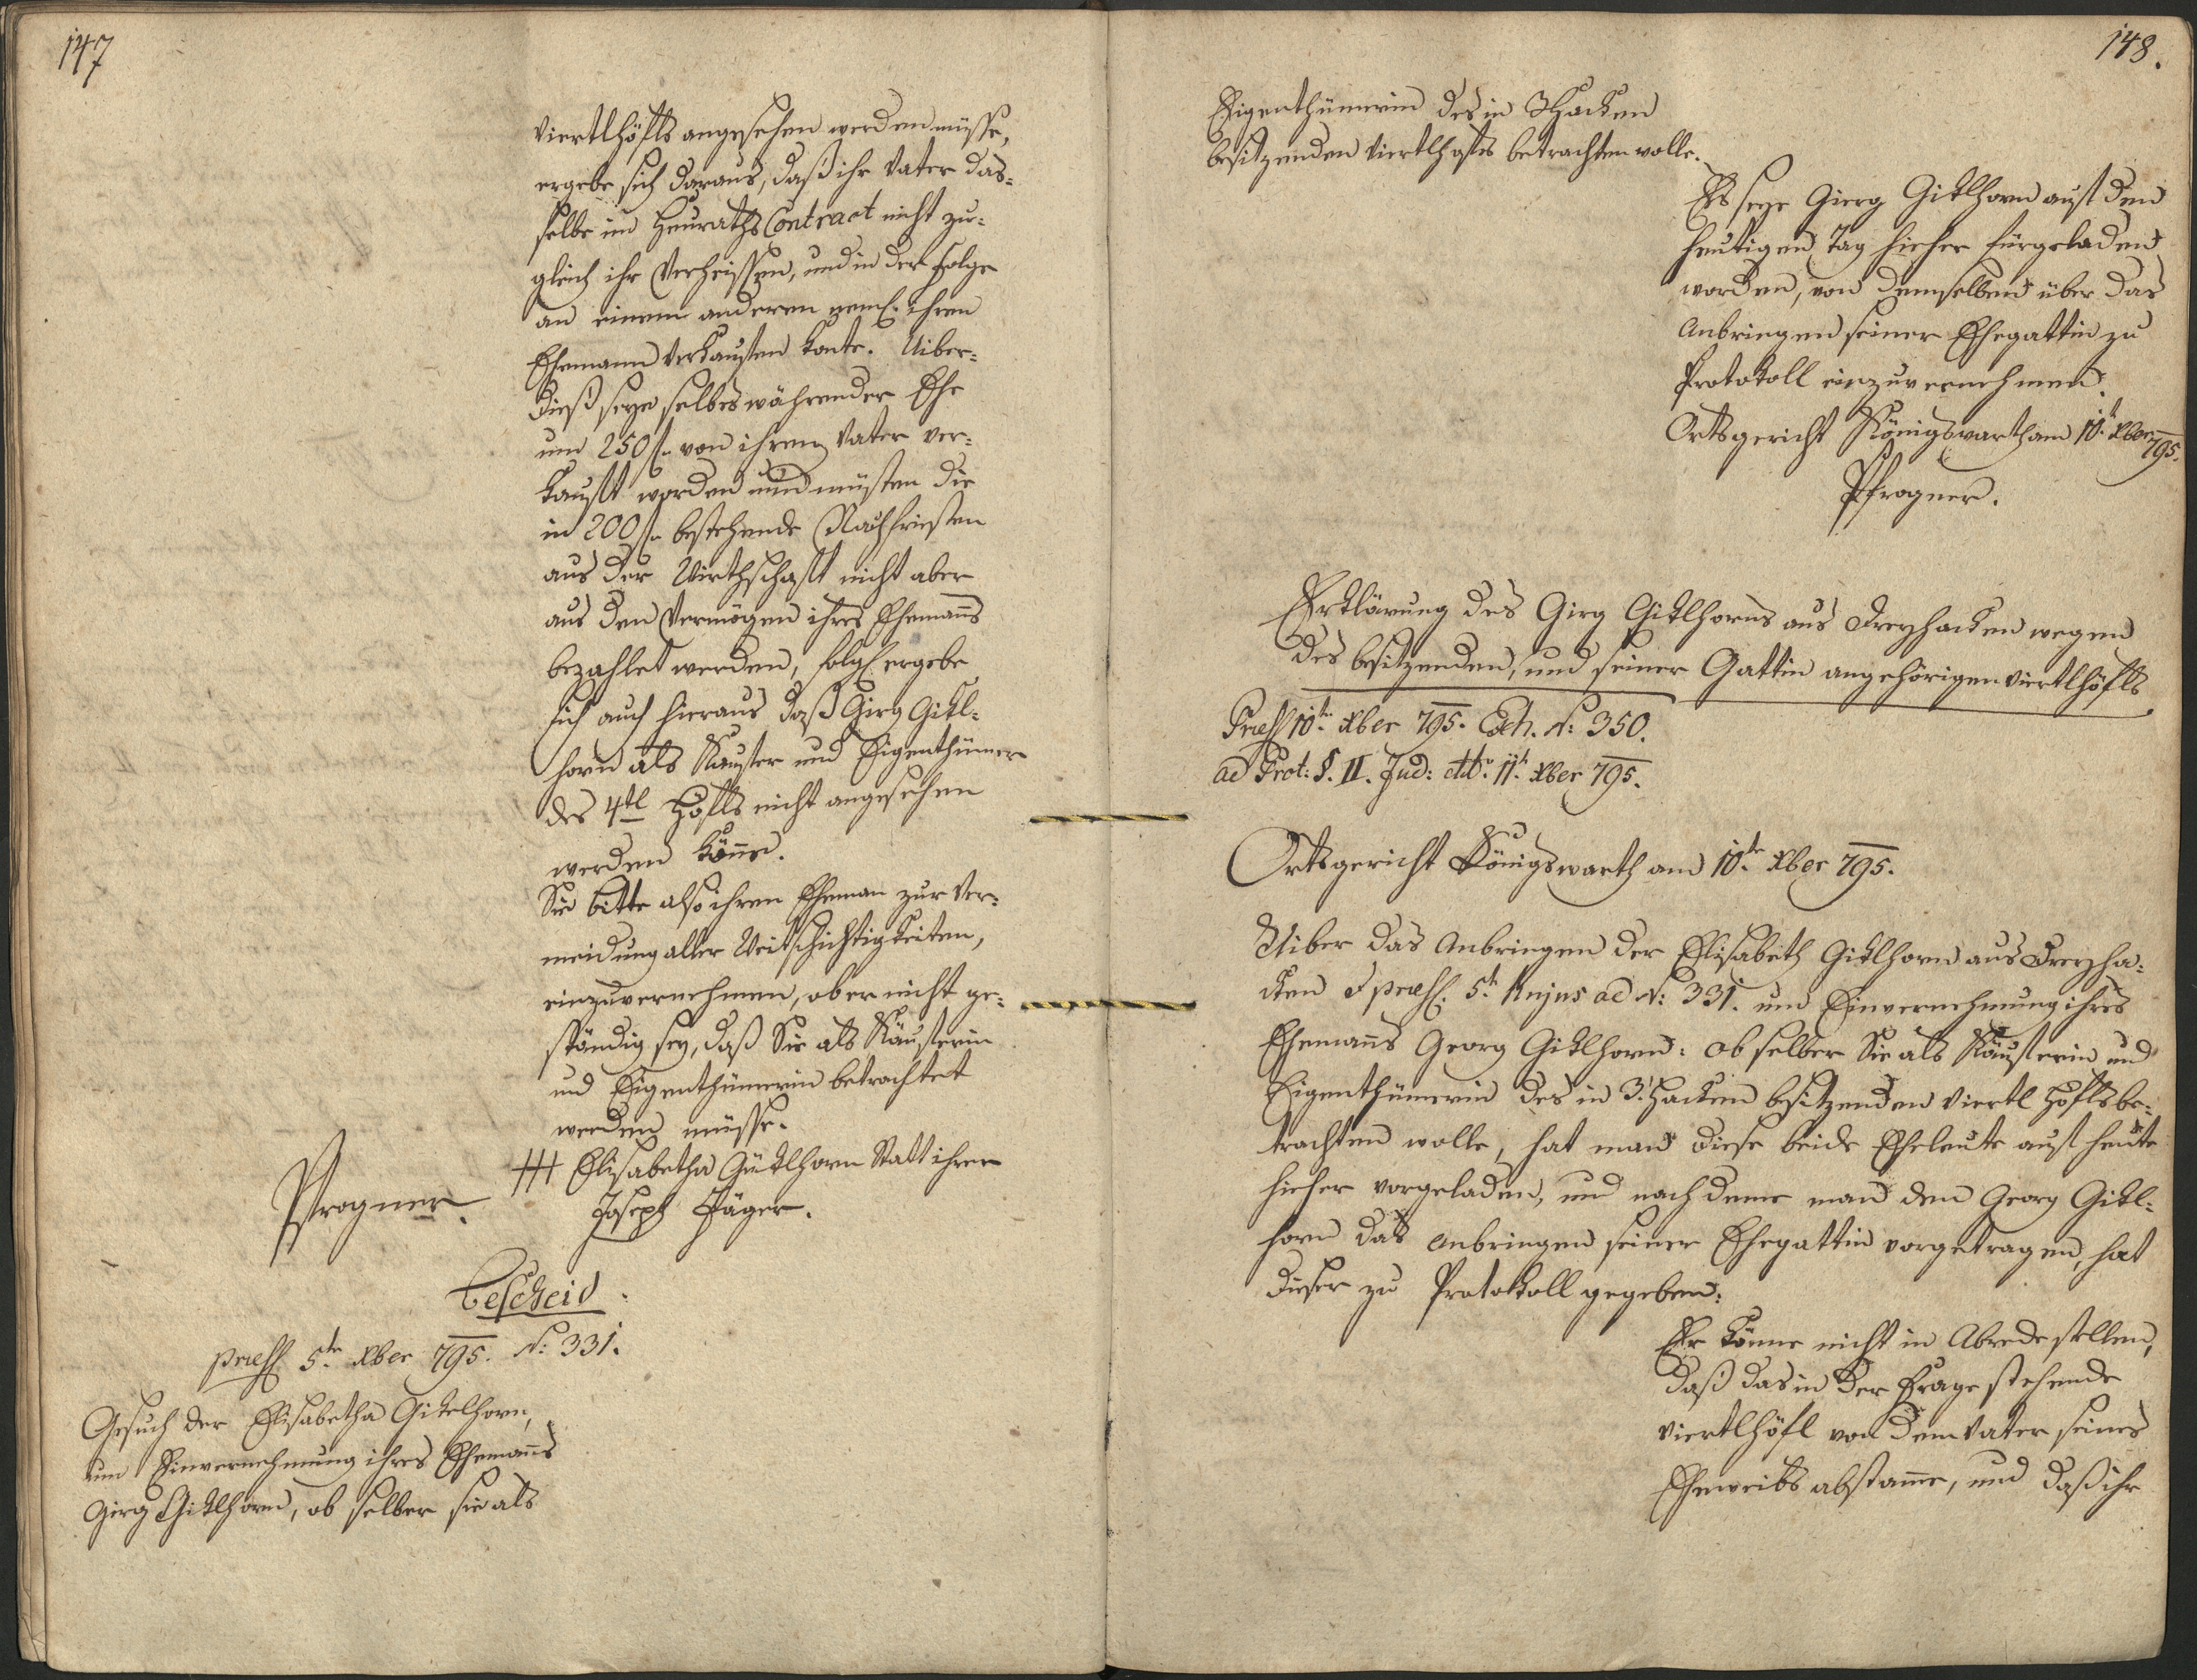 147
Viertlhöfls angesehen werden müsse,
ergebe sich daraus, daß ihr Vater das=
selbe im Heuraths Contract nicht zu=
gleich ihr Verheissen, und in der Folge
an einem anderen neml: ihren
Ehemann Verkaufen konte. Uiber=
dieß seye selbes währender Ehe
um 250 f. von ihrem Vater ver=
kauft worden und müsten die
in 200 f. bestehende Nachfristen
aus der Wirthschaft nicht aber
aus den Vermögen ihres Ehemañs
bezahlet werden, folgl: ergebe
sich auch hieraus daß Girg Gikl=
horn als Kaufer und Eigenthümer
des 4tl Höfls nicht angesehen
werden köñe.
Sie bitte also ihren Eheman zur Ver=
meidung aller Weitschichtigkeiten,
einzuvernehmen, ob er nicht ge=
ständig sey, daß Sie als Käuferin
und Eigenthümerin betrachtet
werden müsse.
+++ Elisabetha Giklhorn Statt ihrer
Pfrogner.
Joseph Jäger.
Bescheid.
præs: 5te Xber 795. N: 331.
Gesuch der Elisabetha Gikelhorn,
um Einvernehmung ihres Ehemañs
Girg Giklhorn, ob selber sie als
148.
Eigenthümerin des in 3Hacken
besitzenden Viertlhofts betrachten wolle.
Es seye Gierg Giklhorn auf den
heutigen Tag hieher fürgeladen
worden, von demselben über das
Anbringen seiner Ehegattin zu
Protokoll einzuvernehmen.
Ortsgericht Königswarth am 10t Xber 795.
Pfrogner.
Erklärung des Girg Giklhorns aus Dreyhacken wegen
des besitzenden, und seiner Gattin angehörigen Viertlhöfls
Præs 10te Xber 795. Exh. N: 350.
ad Prot: §. II. Jud: dtto 11t Xber 795.
Ortsgericht Königswarth am 10te Xber 795.
Uiber das Anbringen der Elisabeth Giklhorn aus Dreyha=
cken præs: 5t hujus ad N: 331. um Einvernehmung ihres
Ehemañs Georg Giklhorn: ob selber Sie als Käuferin und
Eigenthümerin des in 3: Hacken besitzenden Viertl Höfls be=
trachten wolle, hat man diese beide Eheleute auf heute
hieher vorgeladen, und nach deme man dem Georg Gikl=
horn das Anbringen seiner Ehegattin vorgetragen, hat
dieser zu Protokoll gegeben:
Er könne nicht in Abrede stellen,
daß das in der Frage stehende
Viertlhöfl von dem Vater seines
Eheweibs abstam̃e, und daß ihr